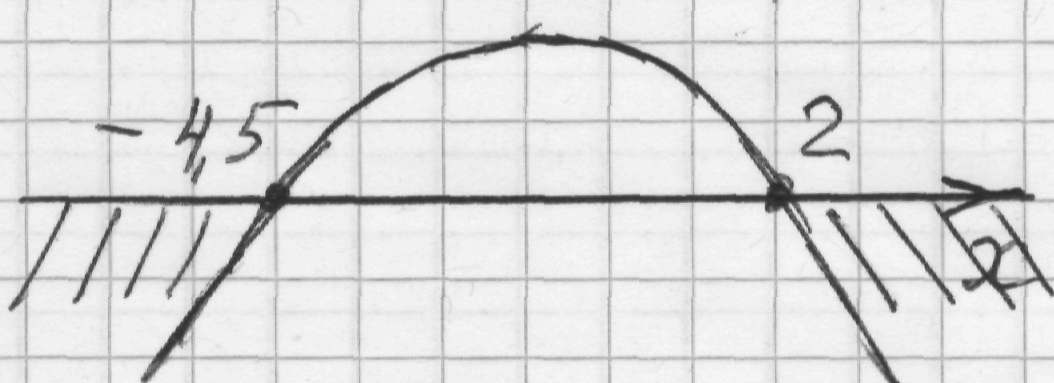 -4,5 2
x